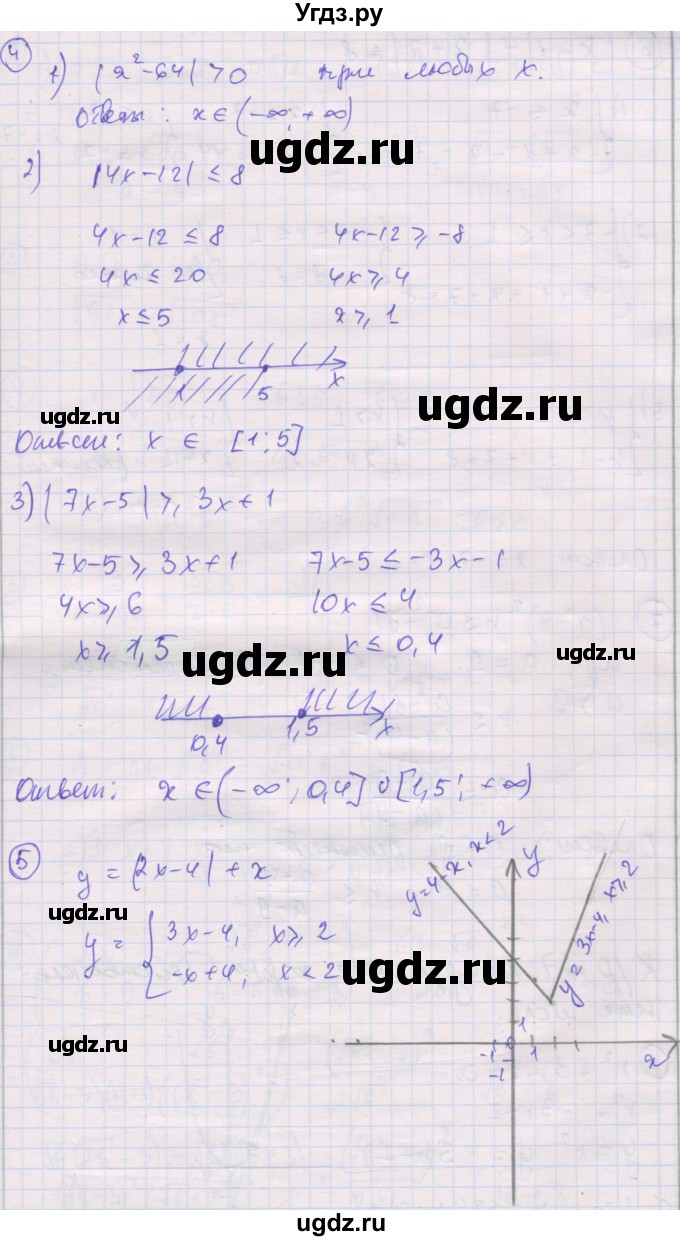 Угдз.ру
4
1) |x²-64| > 0 при любых x.
Ответ: x ∈ (-∞; +∞)
ugdz.ru
2) |4x-12| ≤ 8
4x-12 ≤ 8    4x-12 ≥ -8
4x ≤ 20    4x ≥ 4
x ≤ 5    x ≥ 1
1 5 x
ugdz.ru
ugdz.ru
Ответ: x ∈ [1; 5]
3) |7x-5| ≥ 3x+1
7x-5 ≥ 3x+1    7x-5 ≤ -3x-1
4x ≥ 6    10x ≤ 4
x ≥ 1,5    x ≤ 0,4
ugdz.ru
ugdz.ru
0,4 1,5 x
Ответ: x ∈ (-∞; 0,4] ∪ [1,5; +∞)
5
y = |2x-4| + x
y=4-x, x<2
y
y=3x-4, x≥2
ugdz.ru
y = { 3x-4, x ≥ 2
-x+4, x < 2
ugdz.ru
1
-1 0 1 x
-1
ugdz.ru